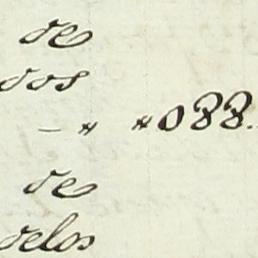 de
dos
– " "088.
de
delos